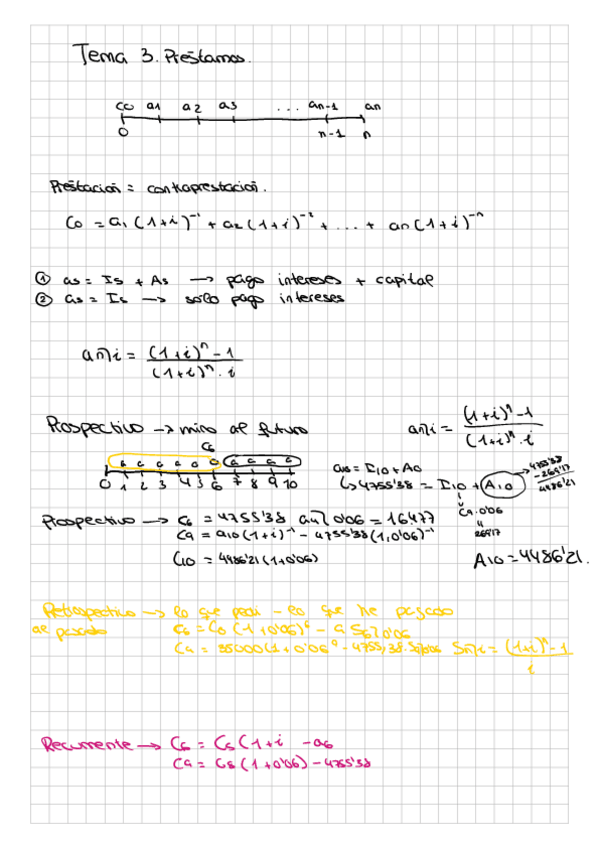 Tema 3. Préstamos.
C0 a1 a2 a3 ... an-1 an
0 n-1 n
Prestación = contraprestación.
C0 = a1 (1+i)^-1 + a2 (1+i)^-2 + ... + an (1+i)^-n
① as = Is + As → pago intereses + capital
② as = Is → solo pago intereses
an⌉i = (1+i)^n - 1 / (1+i)^n · i
Prospectivo → miro al futuro
an⌉i = (1+i)^n - 1 / (1+i)^n · i
C6
a a a a a a a a a a
0 1 2 3 4 5 6 7 8 9 10
a10 = I10 + A10
↳ 4755'38 = I10 + A10 → 4755'38
- 269'17
4486'21
C9 · 0'06
269'17
A10 = 4486'21.
Prospectivo → C6 = 4755'38 a4⌉0'06 = 16477
C9 = a10 (1+i)^-1 - 4755'38 (1,0'06)^-1
C10 = 4486'21 (1+0'06)
Retrospectivo → lo que pedí - lo que he pagado
al pasado
C6 = C0 (1+0'06)^6 - a S6⌉0'06
C9 = 35000 (1+0'06^9 - 4755,38 · S9⌉0'06 Sn⌉i = (1+i)^n - 1 / i
Recurrente → C6 = C5 (1+i - a6
C9 = C8 (1+0'06) - 4755'38